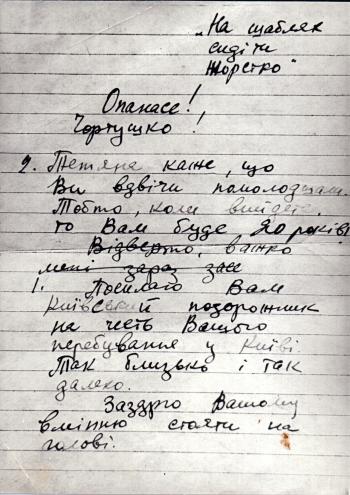 „На щаблях
сидіти
жорстко"
Опанасе!
Чортушко!
2. Тетяна каже, що
Ви вдвічи помолодшали.
Тобто, коли вийдете,
то Вам буде 20 років!
Відверто, важко
мені зараз
1. Посилаю Вам
Київський подорожник
на честь Вашого
перебування у Києві.
Так близько і так
далеко.
Заздрю Вашому
вмінню стояти на
голові.